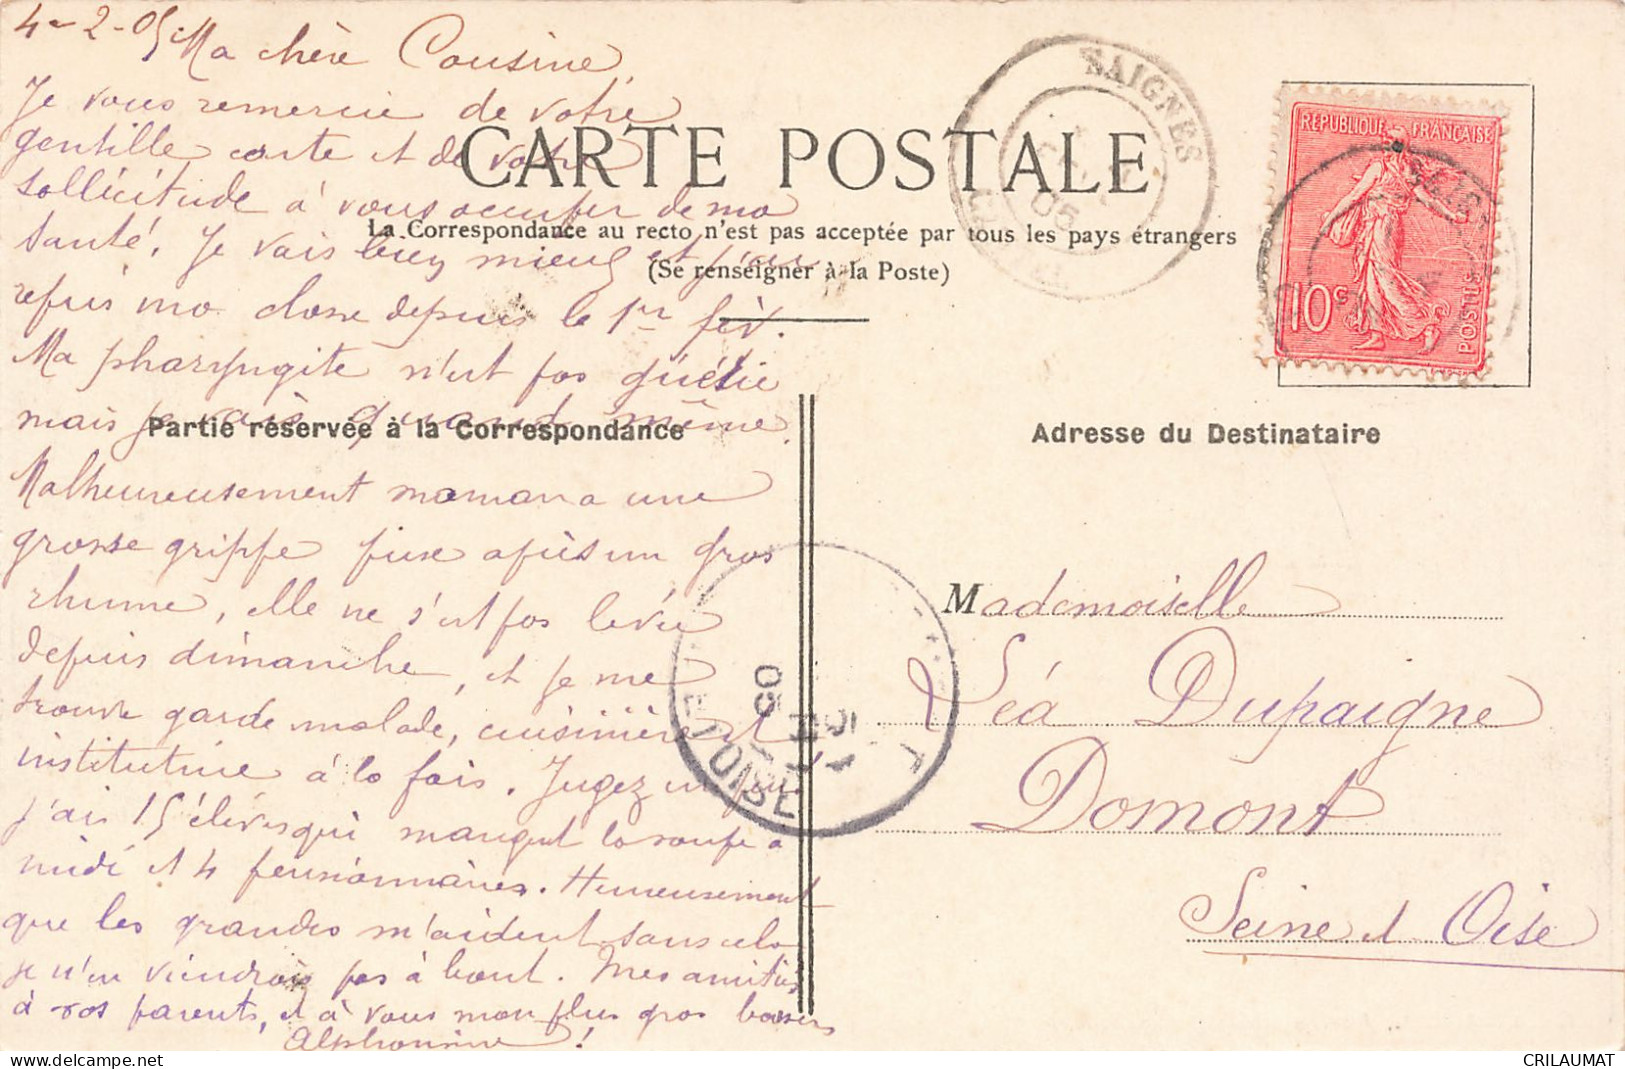 4-2-05. Ma chère Cousine,
Je vous remercie de votre
gentille carte et de votre
sollicitude à vous occuper de ma
santé. Je vais bien mieux et j'ai
repris ma classe depuis le 1er fév.
Ma pharyngite n'est pas guérie
mais je vais quand même.
Malheureusement maman a une
grosse grippe puis après un gros
rhume, elle ne s'est pas levée
depuis dimanche, et je me
trouve garde malade, cuisinière et
institutrice à la fois. Jugez un peu
j'ai 15 élèves qui mangent la soupe à
midi et 4 pensionnaires. Heureusement
que les grandes m'aident sans cela
je n'en viendrais pas à bout. Mes amitiés
à vos parents, et à vous mon plus gros baisers
Alphonsine!
CARTE POSTALE
La Correspondance au recto n'est pas acceptée par tous les pays étrangers
(Se renseigner à la Poste)
Partie réservée à la Correspondance
Adresse du Destinataire
SAIGNES
05
REPUBLIQUE FRANÇAISE
10c
POSTES
Mademoiselle
Léa Dupaigne
Domont
Seine et Oise
05
ET OISE
CRILAUMAT
www.delcampe.net